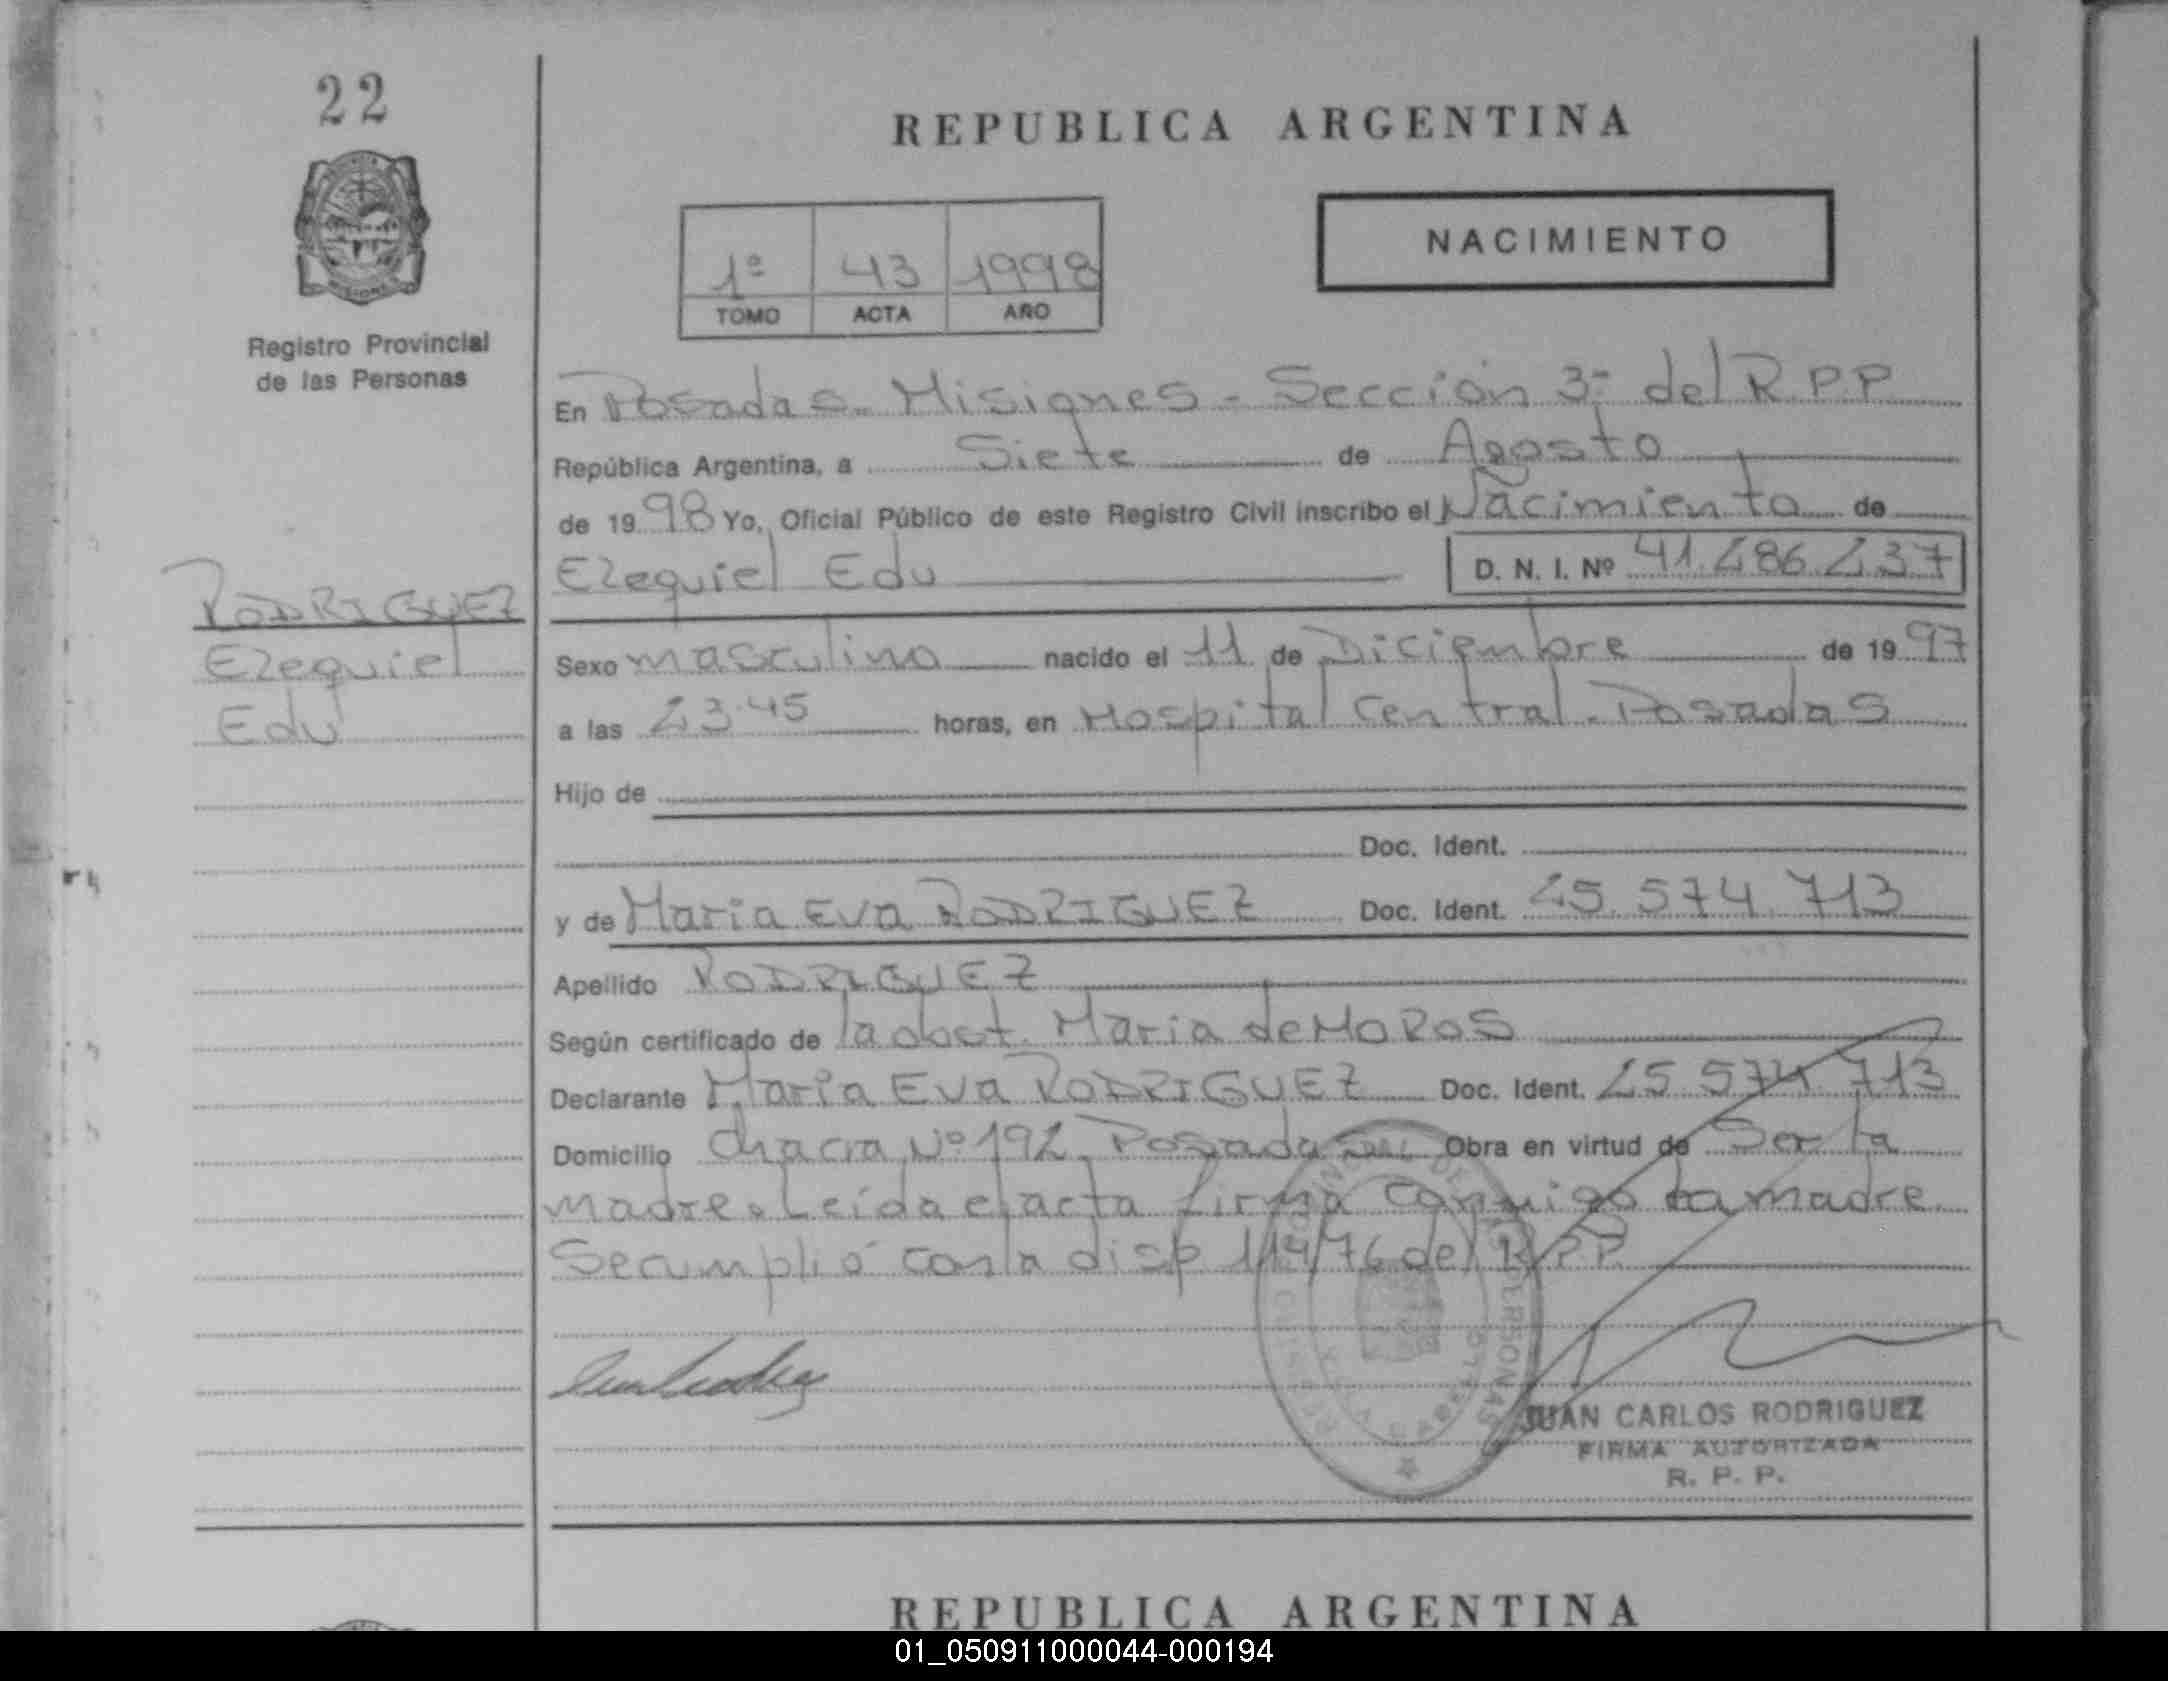 22
REPUBLICA ARGENTINA
1º 43 1998
TOMO ACTA AÑO
NACIMIENTO
Registro Provincial
de las Personas
En Posadas - Misiones - Sección 3ª del R.P.P
República Argentina, a Siete de Agosto
de 1998 Yo, Oficial Público de este Registro Civil inscribo el Nacimiento de
Ezequiel Edu D. N. I. Nº 41.286.237
RODRIGUEZ
Ezequiel
Edu
Sexo masculino nacido el 11 de Diciembre de 1997
a las 23.45 horas, en Hospital Central - Posadas
Hijo de
Doc. Ident.
y de Maria Eva RODRIGUEZ Doc. Ident. 25.574.713
Apellido RODRIGUEZ
Según certificado de la obst. Maria de MOROS
Declarante Maria Eva RODRIGUEZ Doc. Ident. 25.574.713
Domicilio Chacra Nº 192 Posadas Obra en virtud de Ser la
madre. Leída el acta firma conmigo la madre
Se cumplió con la disp 119/76 del R.P.P.
JUAN CARLOS RODRIGUEZ
FIRMA AUTORIZADA
R. P. P.
REPUBLICA ARGENTINA
01_050911000044-000194